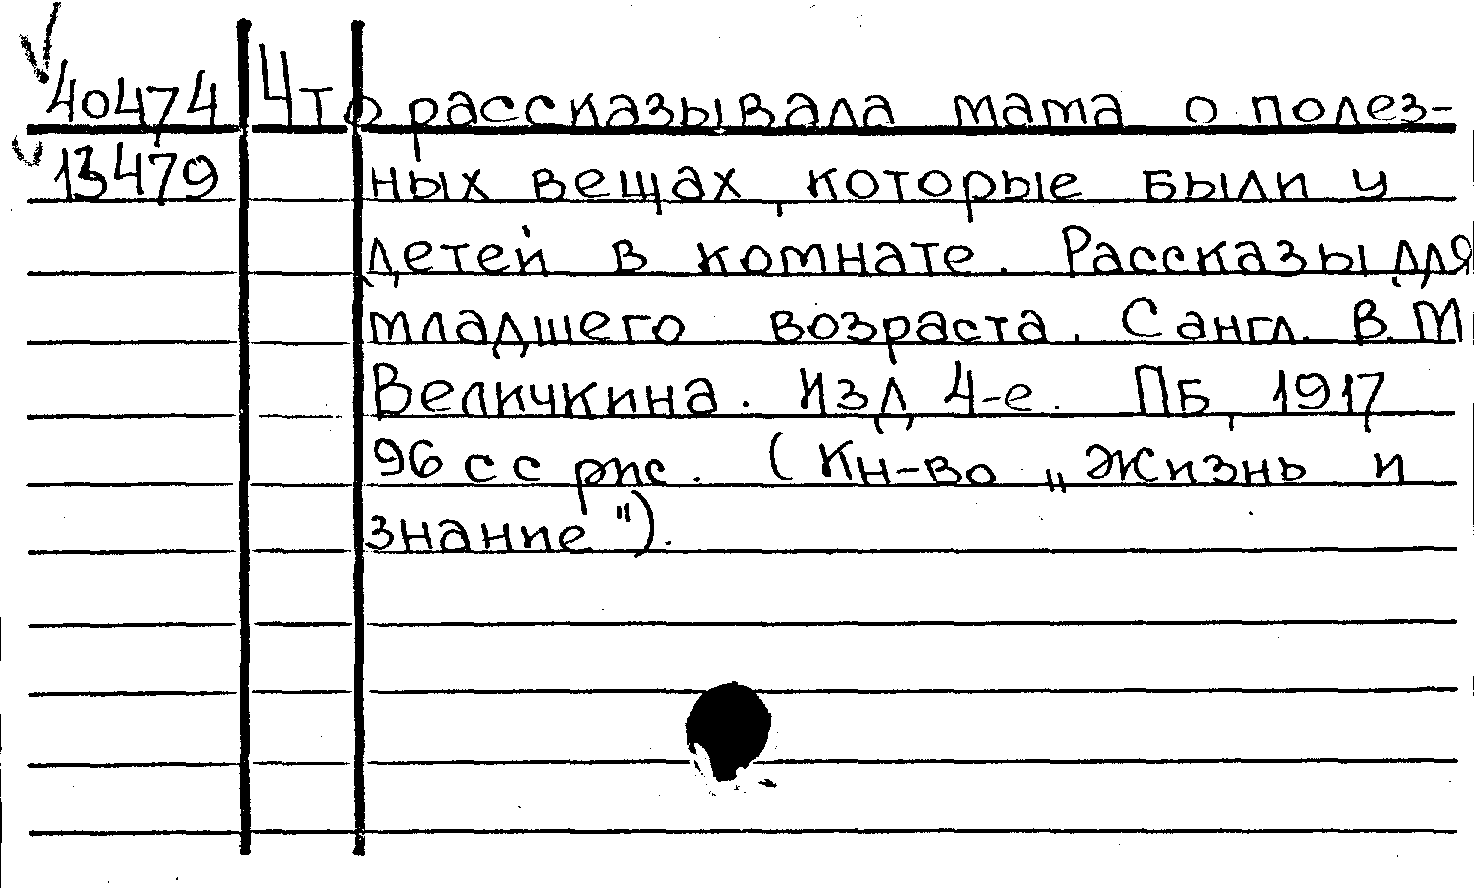 40474 Что рассказывала мама о полез-
13479 ных вещах, которые были у
детей в комнате. Рассказы для
младшего возраста. С англ. В.М
Величкина. Изд 4-е. ПБ, 1917
96 с с рис. (Кн-во „Жизнь и
знание").